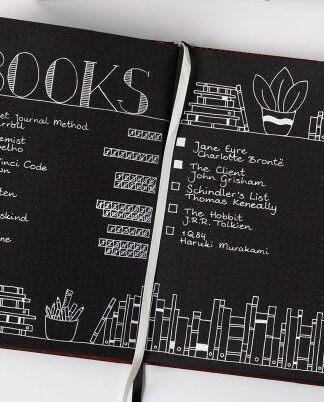 BOOKS
et Journal Method
rroll
emist
elho
inci Code
on
ten
skind
ne
Jane Eyre
Charlotte Brontë
The Client
John Grisham
Schindler's List
Thomas Keneally
The Hobbit
J.R.R. Tolkien
1Q84
Haruki Murakami